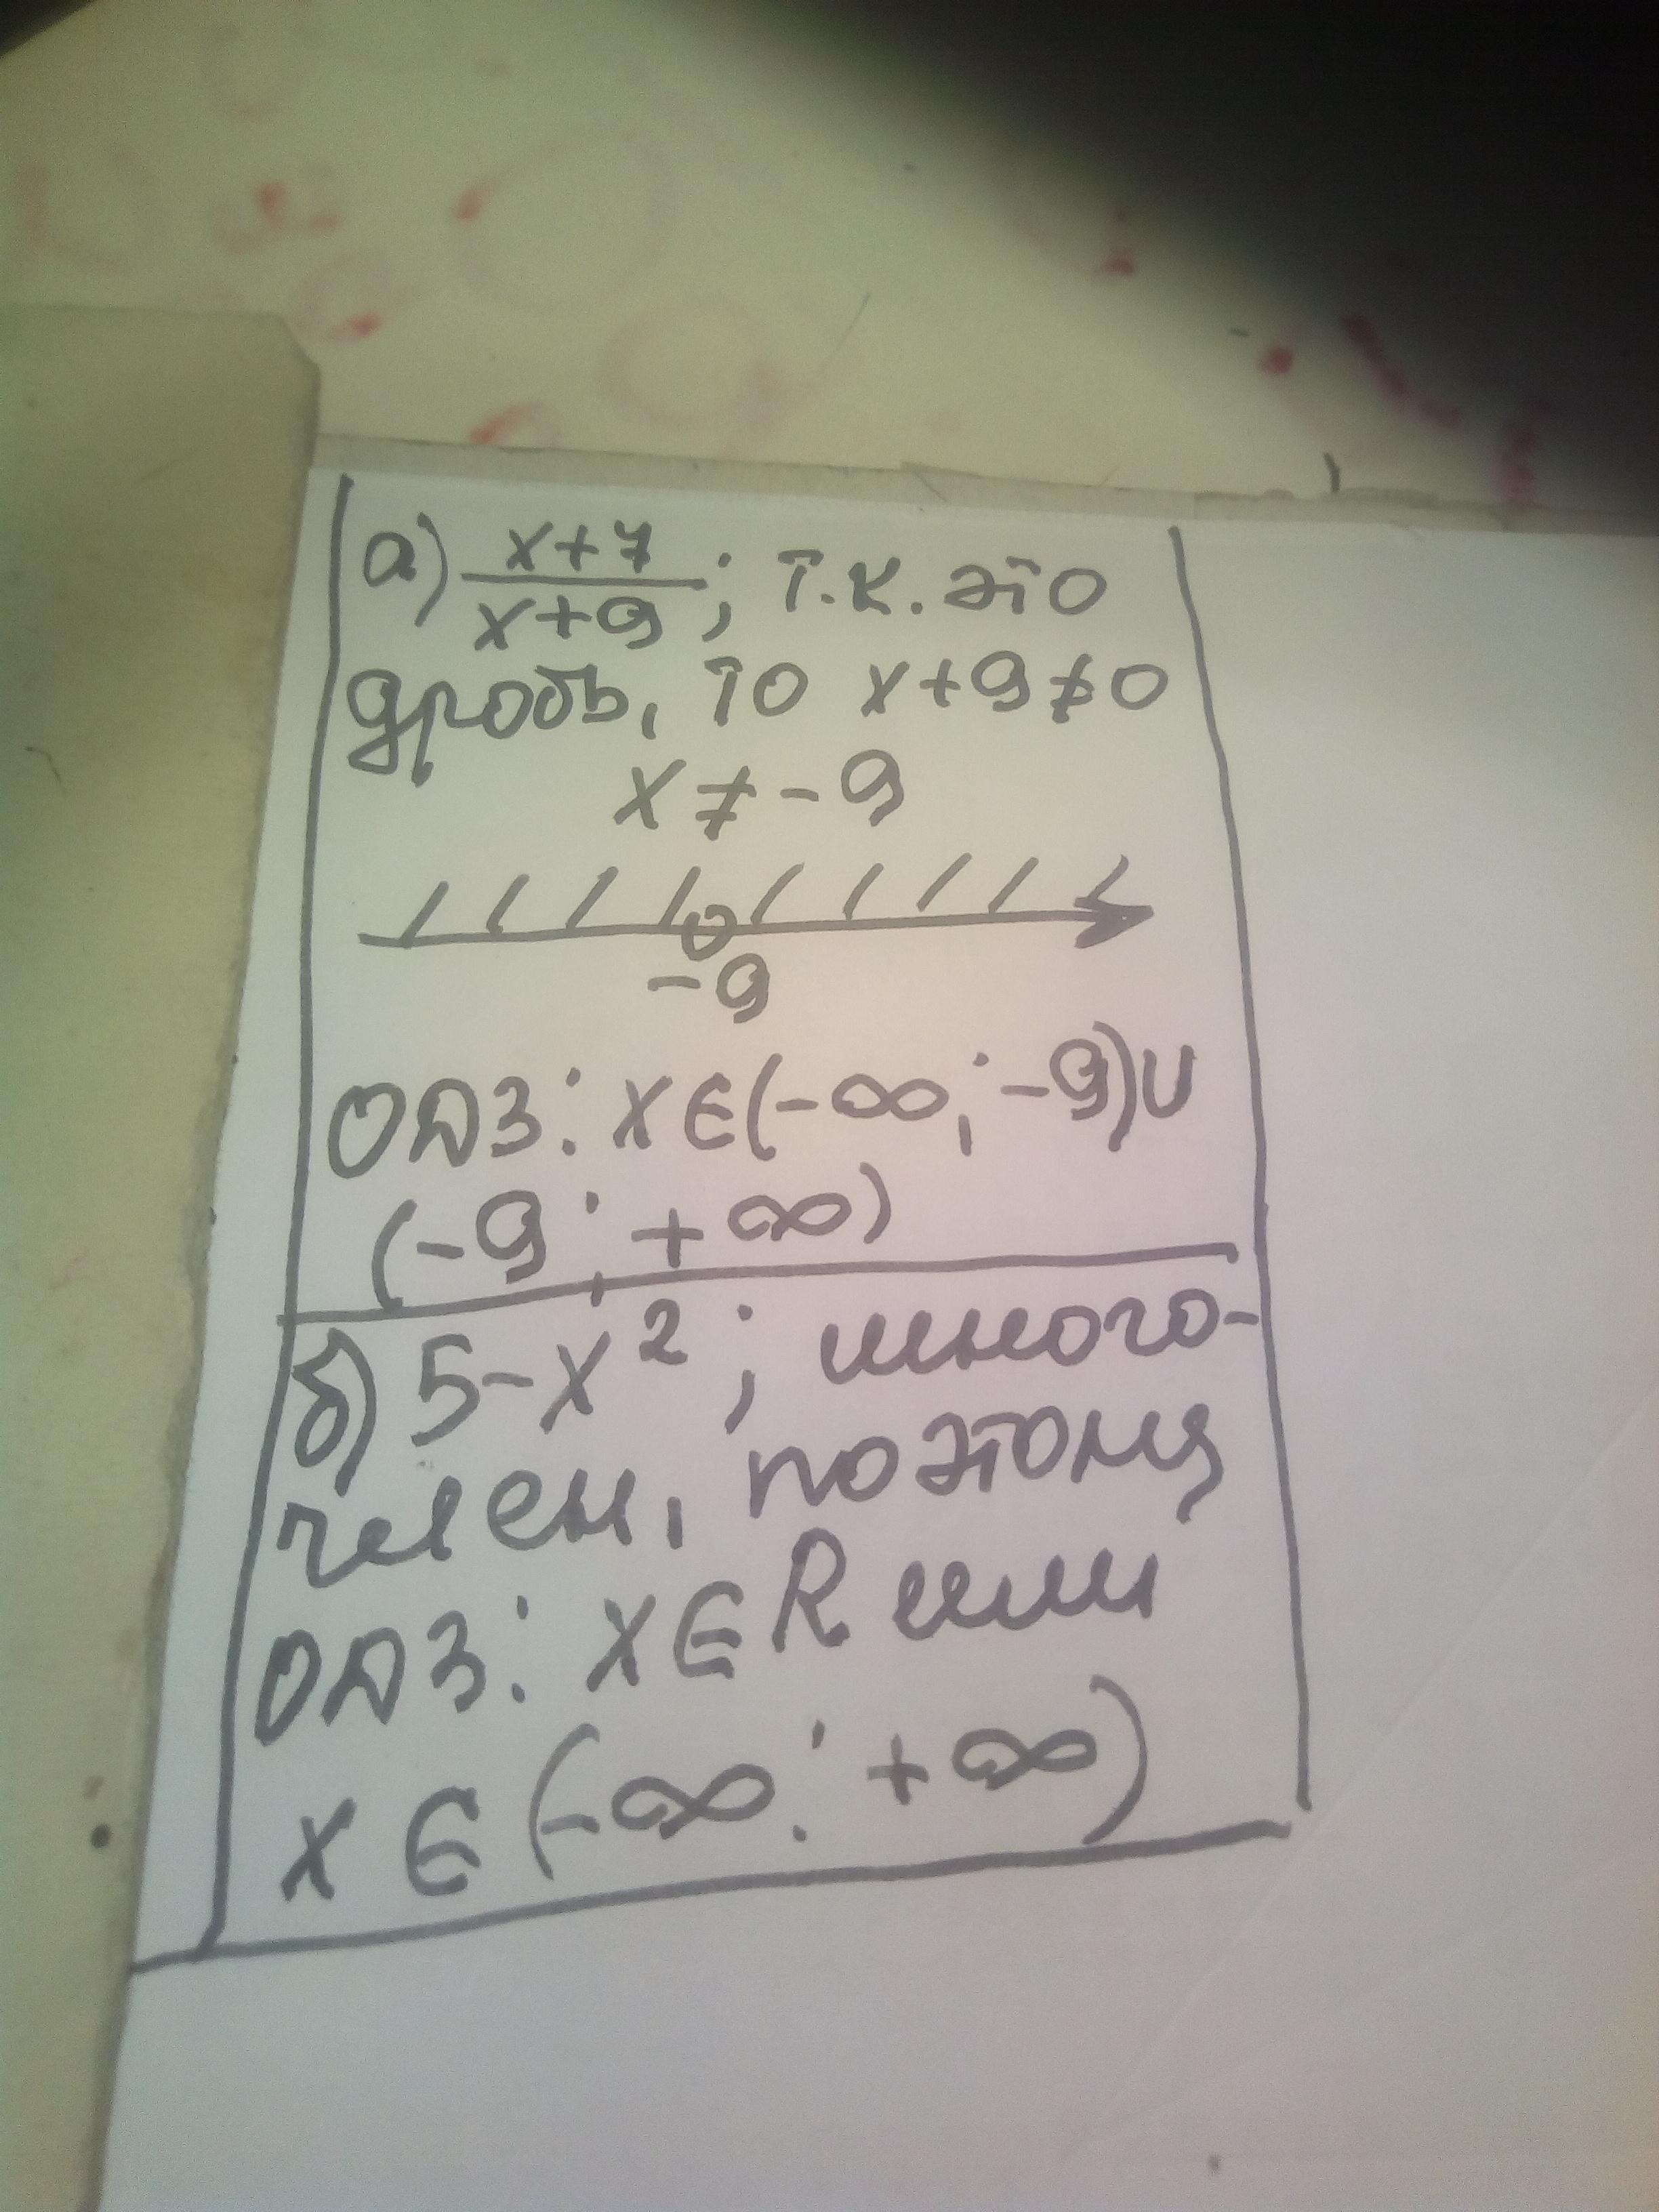 а) x+7/x+9; т.к. это
дробь, то x+9≠0
x ≠ -9
-9
ОДЗ: x∈(-∞; -9)∪
(-9; +∞)
б) 5-x²; много-
член, поэтому
ОДЗ: x∈R или
x ∈ (-∞; +∞)